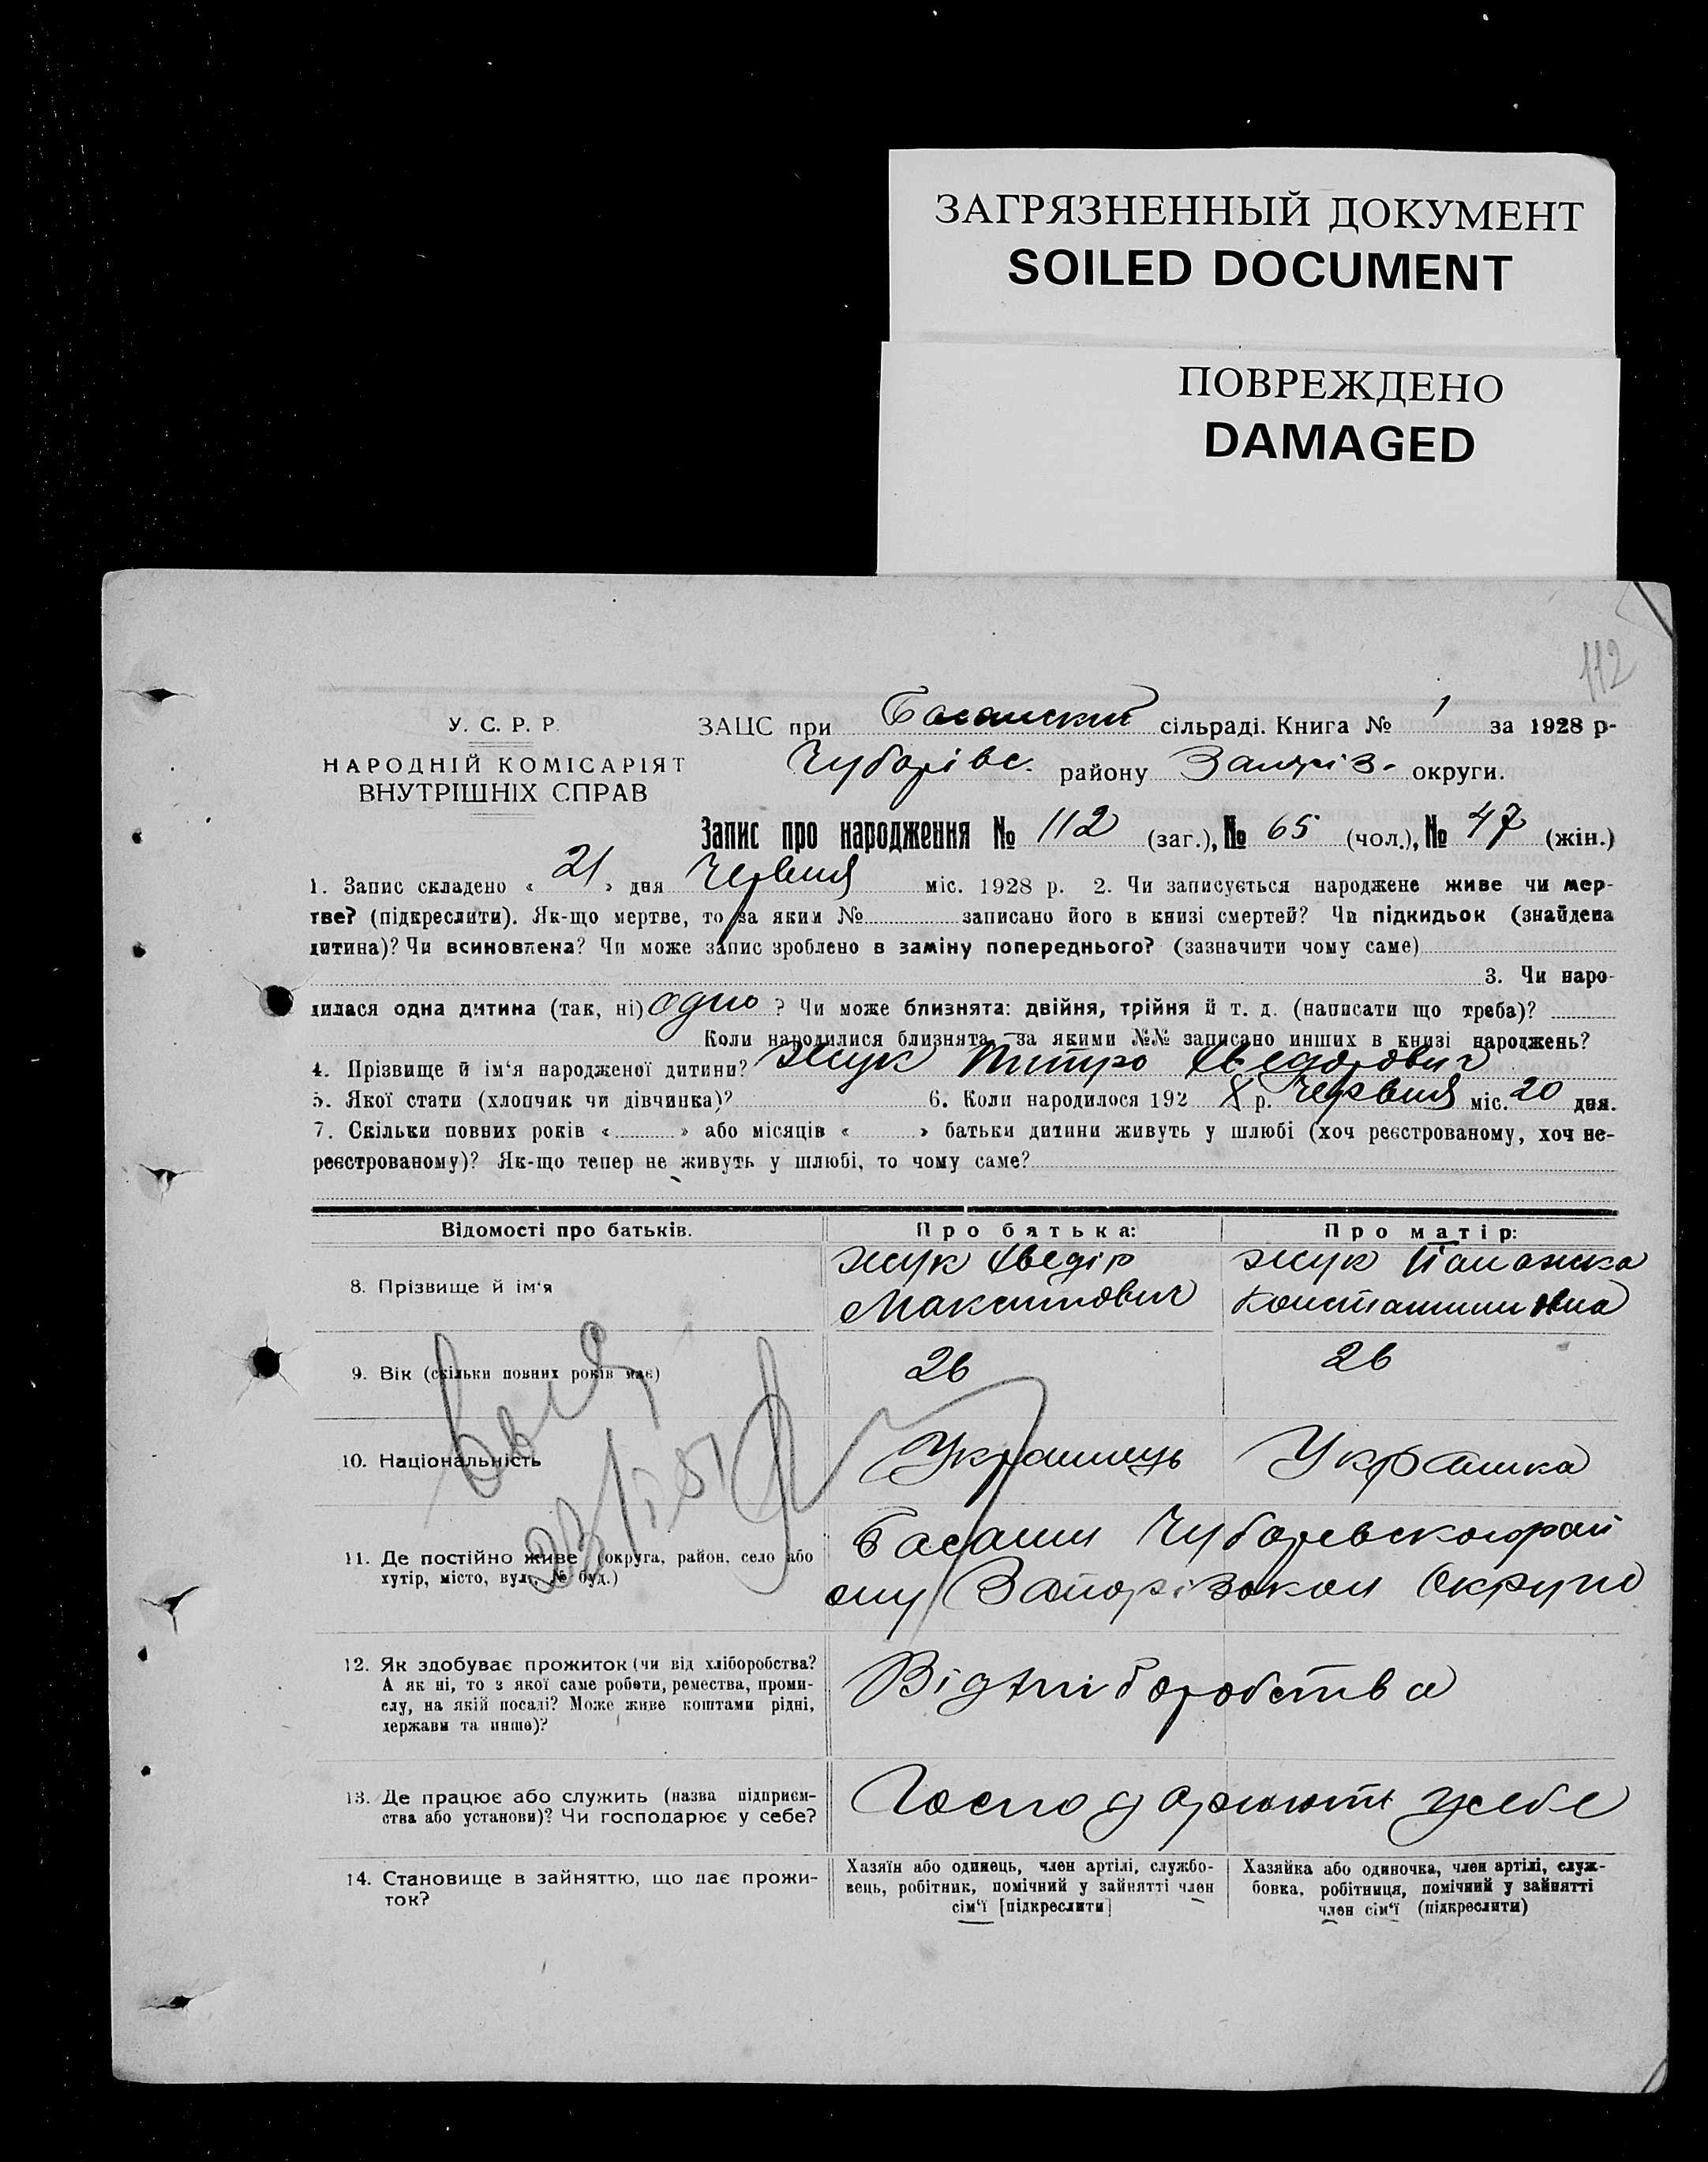 ЗАГРЯЗНЕННЫЙ ДОКУМЕНТ
SOILED DOCUMENT
ПОВРЕЖДЕНО
DAMAGED
112
У. С. Р. Р.
НАРОДНІЙ КОМІСАРІЯТ
ВНУТРІШНІХ СПРАВ
ЗАЦС при Басанский сільраді. Книга № 1 за 1928 р-
Чубарівс. району Запоріз- округи.
Запис про народження № 112 (заг.), № 65 (чол.), № 47 (жін.)
1. Запис складено « 21 » дня Червня міс. 1928 р. 2. Чи записується народжене живе чи мер-
тве? (підкреслити). Як-що мертве, то за яким № записано його в книзі смертей? Чи підкидьок (знайдена
дитина)? Чи всиновлена? Чи може запис зроблено в заміну попереднього? (зазначити чому саме)
3. Чи наро-
дилася одна дитина (так, ні) одно ? Чи може близнята: двійня, трійня й т. д. (написати що треба)?
Коли народилися близнята, за якими №№ записано инших в книзі народжень?
4. Прізвище й ім‘я народженої дитини? Жук Дмитро Хведорович
5. Якої стати (хлопчик чи дівчинка)? 6. Коли народилося 192 8 р. Червня міс. 20 дня.
7. Скільки повних років « » або місяців « » батьки дитини живуть у шлюбі (хоч реєстрованому, хоч не-
реєстрованому)? Як-що тепер не живуть у шлюбі, то чому саме?
Відомості про батьків. Про батька: Про матір:
8. Прізвище й ім‘я
Жук Хведір Жук
Максимович Константиновна
9. Вік (скільки повних років має) 26 26
10. Національність Українець Українка
11. Де постійно живе (округа, район, село або
хутір, місто, вул., № буд.)
Басани Чубаревского рай
ону Запорізской Округи
12. Як здобуває прожиток (чи від хліборобства?
А як ні, то з якої саме роботи, ремества, проми-
слу, на якій посаді? Може живе коштами рідні,
держави та инше)?
Від хліборобства
13. Де працює або служить (назва підприєм-
ства або установи)? Чи господарює у себе?
Господарюють у себе
14. Становище в зайняттю, що дає прожи-
ток?
Хазяїн або одинець, член артілі, службо-
вець, робітник, помічний у зайнятті член
сім‘ї [підкреслити]
Хазяйка або одиночка, член артілі, служ-
бовка, робітниця, помічний у зайнятті
член сім‘ї (підкреслити)